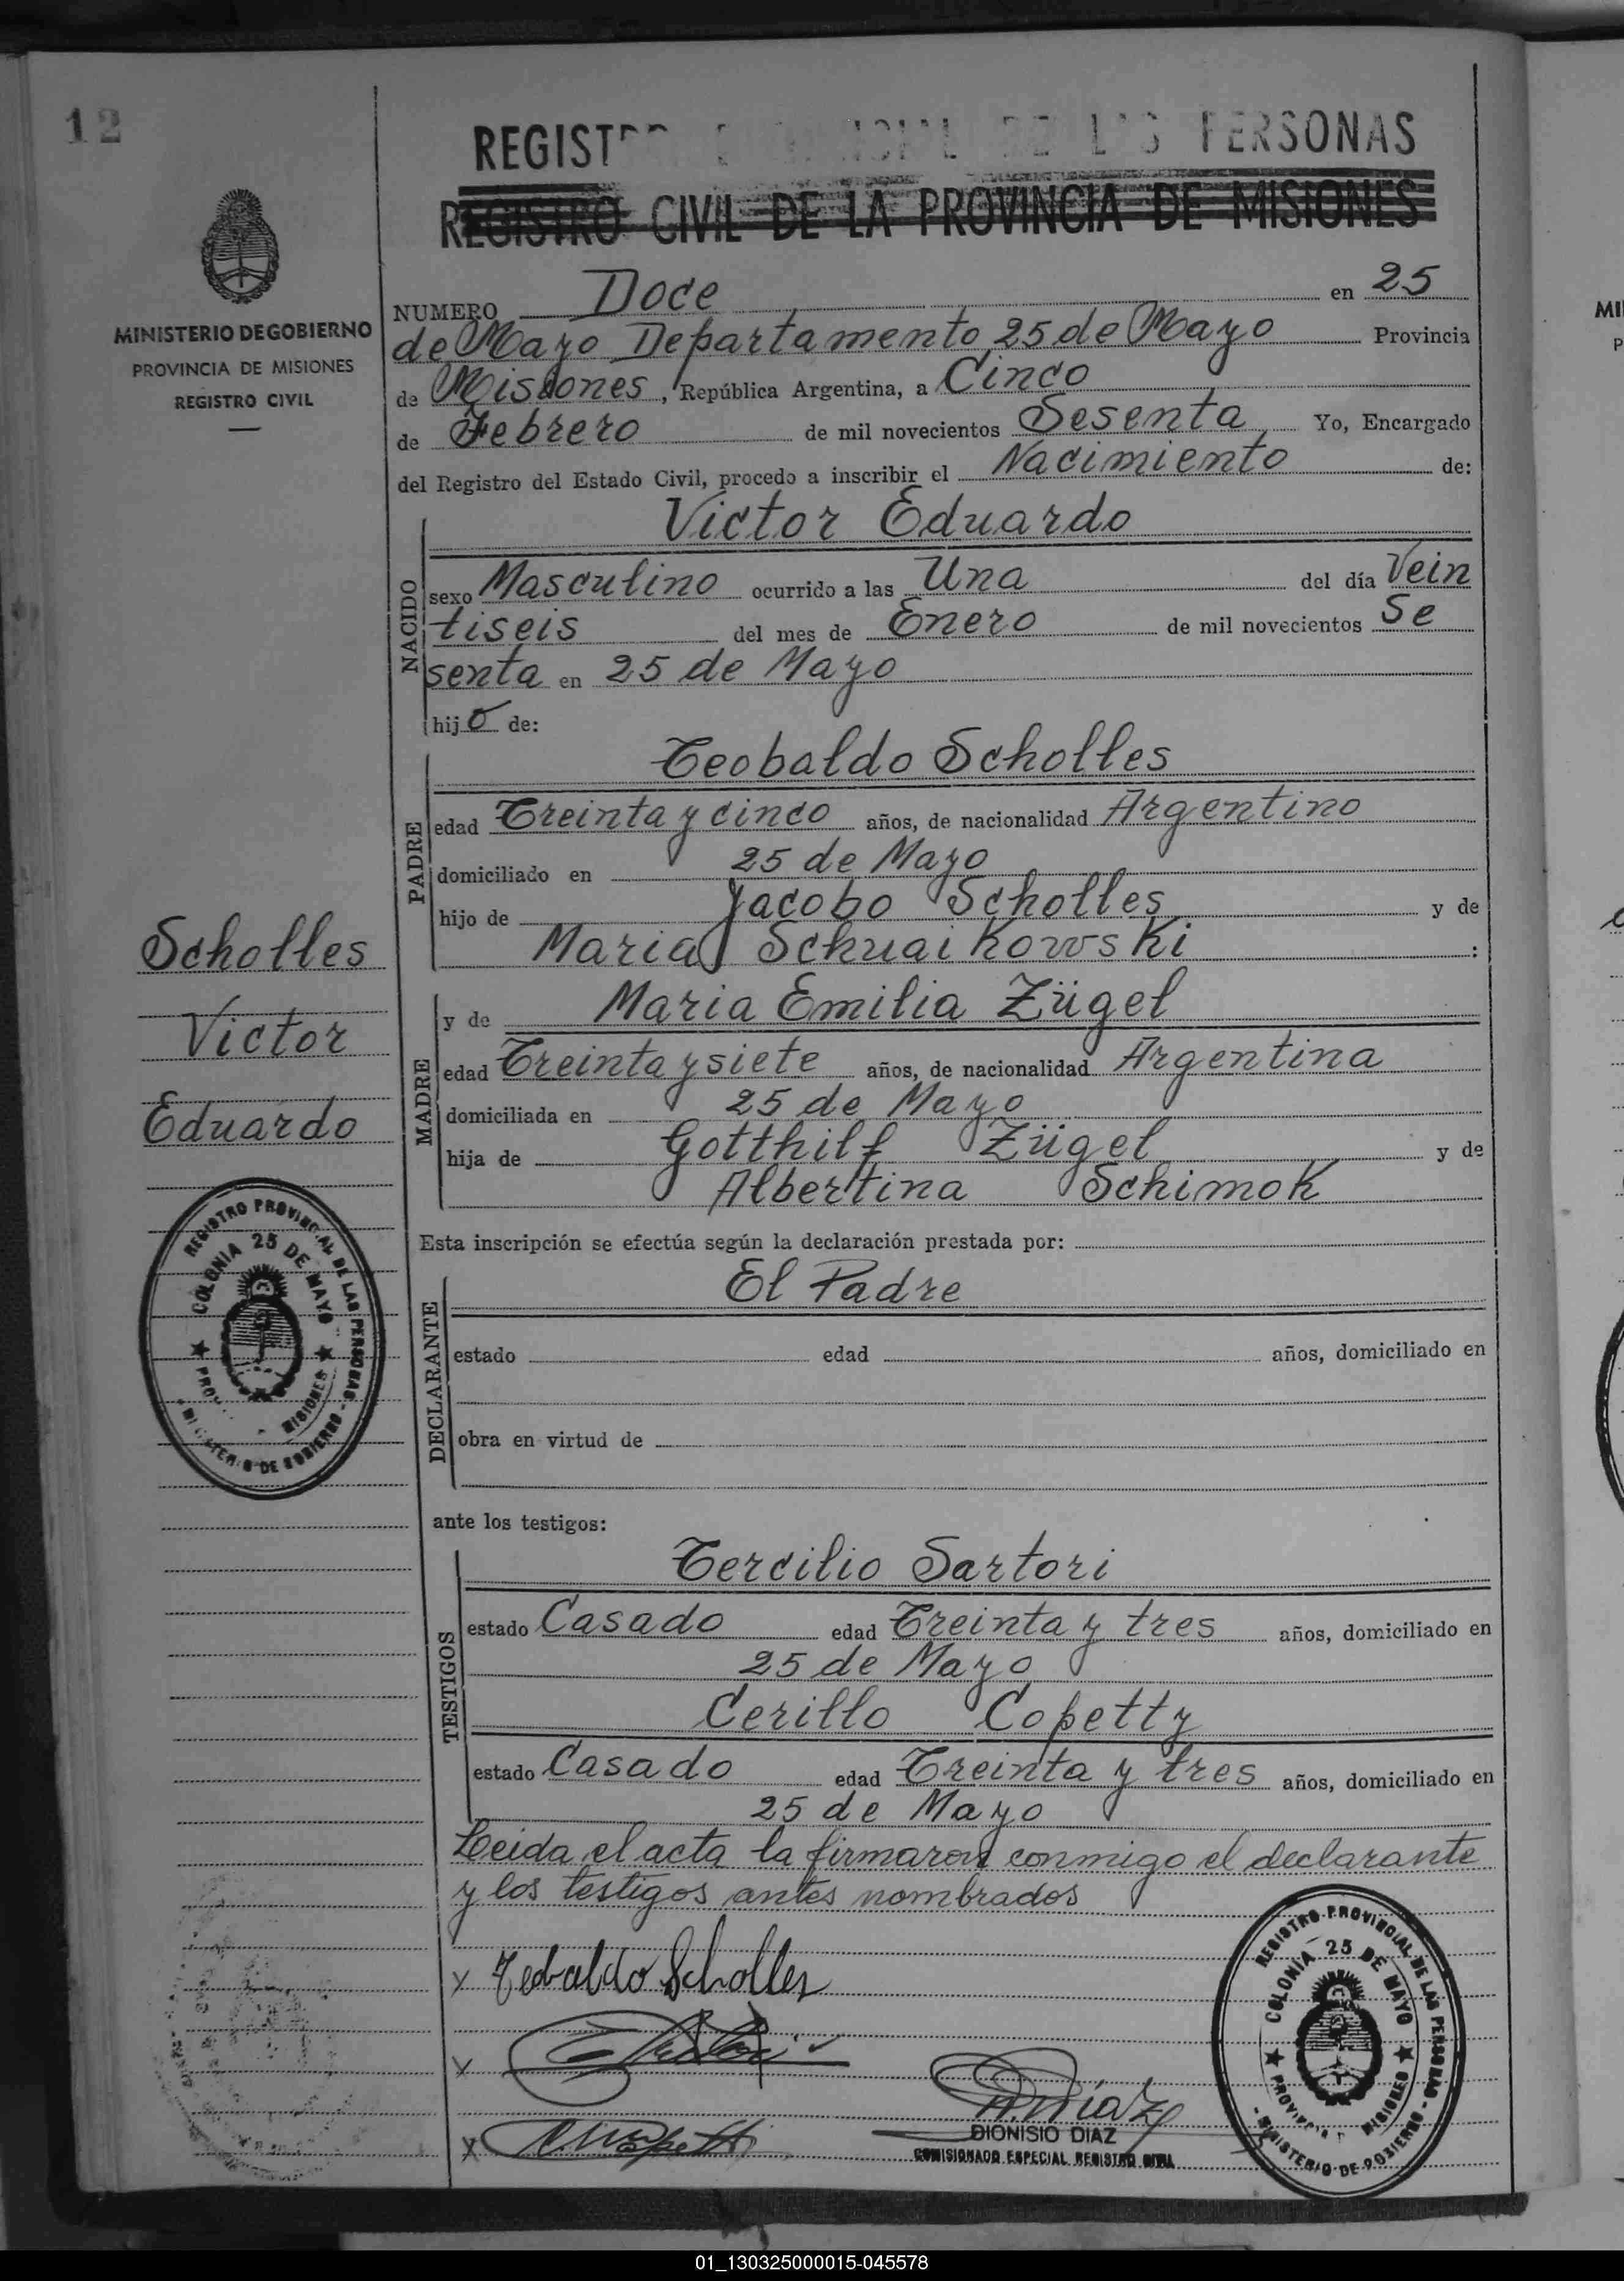 12
REGISTRO PROVINCIAL DE LAS PERSONAS
REGISTRO CIVIL DE LA PROVINCIA DE MISIONES
MINISTERIO DE GOBIERNO
PROVINCIA DE MISIONES
REGISTRO CIVIL
NUMERO Doce en 25
de Mayo Departamento 25 de Mayo Provincia
de Misiones, República Argentina, a Cinco
de Febrero de mil novecientos Sesenta Yo, Encargado
del Registro del Estado Civil, procedo a inscribir el Nacimiento de:
Victor Eduardo
NACIDO
sexo Masculino ocurrido a las Una del día Vein
tiseis del mes de Enero de mil novecientos Se
senta en 25 de Mayo
hijo de:
Teobaldo Scholles
PADRE
edad Treinta y cinco años, de nacionalidad Argentino
domiciliado en 25 de Mayo
hijo de Jacobo Scholles y de
Maria Schuaikowski :
Scholles
Victor
Eduardo
MADRE
y de Maria Emilia Zügel
edad Treinta y siete años, de nacionalidad Argentina
domiciliada en 25 de Mayo
hija de Gotthilf Zügel y de
Albertina Schimok
REGISTRO PROVINCIAL DE LAS PERSONAS
COLONIA 25 DE MAYO
MISIONES
Esta inscripción se efectúa según la declaración prestada por:
El Padre
DECLARANTE
estado edad años, domiciliado en
obra en virtud de
ante los testigos:
Tercilio Sartori
TESTIGOS
estado Casado edad Treinta y tres años, domiciliado en
25 de Mayo
Cerillo Copetty
estado Casado edad Treinta y tres años, domiciliado en
25 de Mayo
Leida el acta la firmaron conmigo el declarante
y los testigos antes nombrados
x Teobaldo Scholles
x
x
D. Díaz
DIONISIO DIAZ
COMISIONADO ESPECIAL REGISTRO CIVIL
REGISTRO PROVINCIAL DE LAS PERSONAS - MINISTERIO DE GOBIERNO -
COLONIA 25 DE MAYO
PROVINCIA MISIONES
01_130325000015-045578